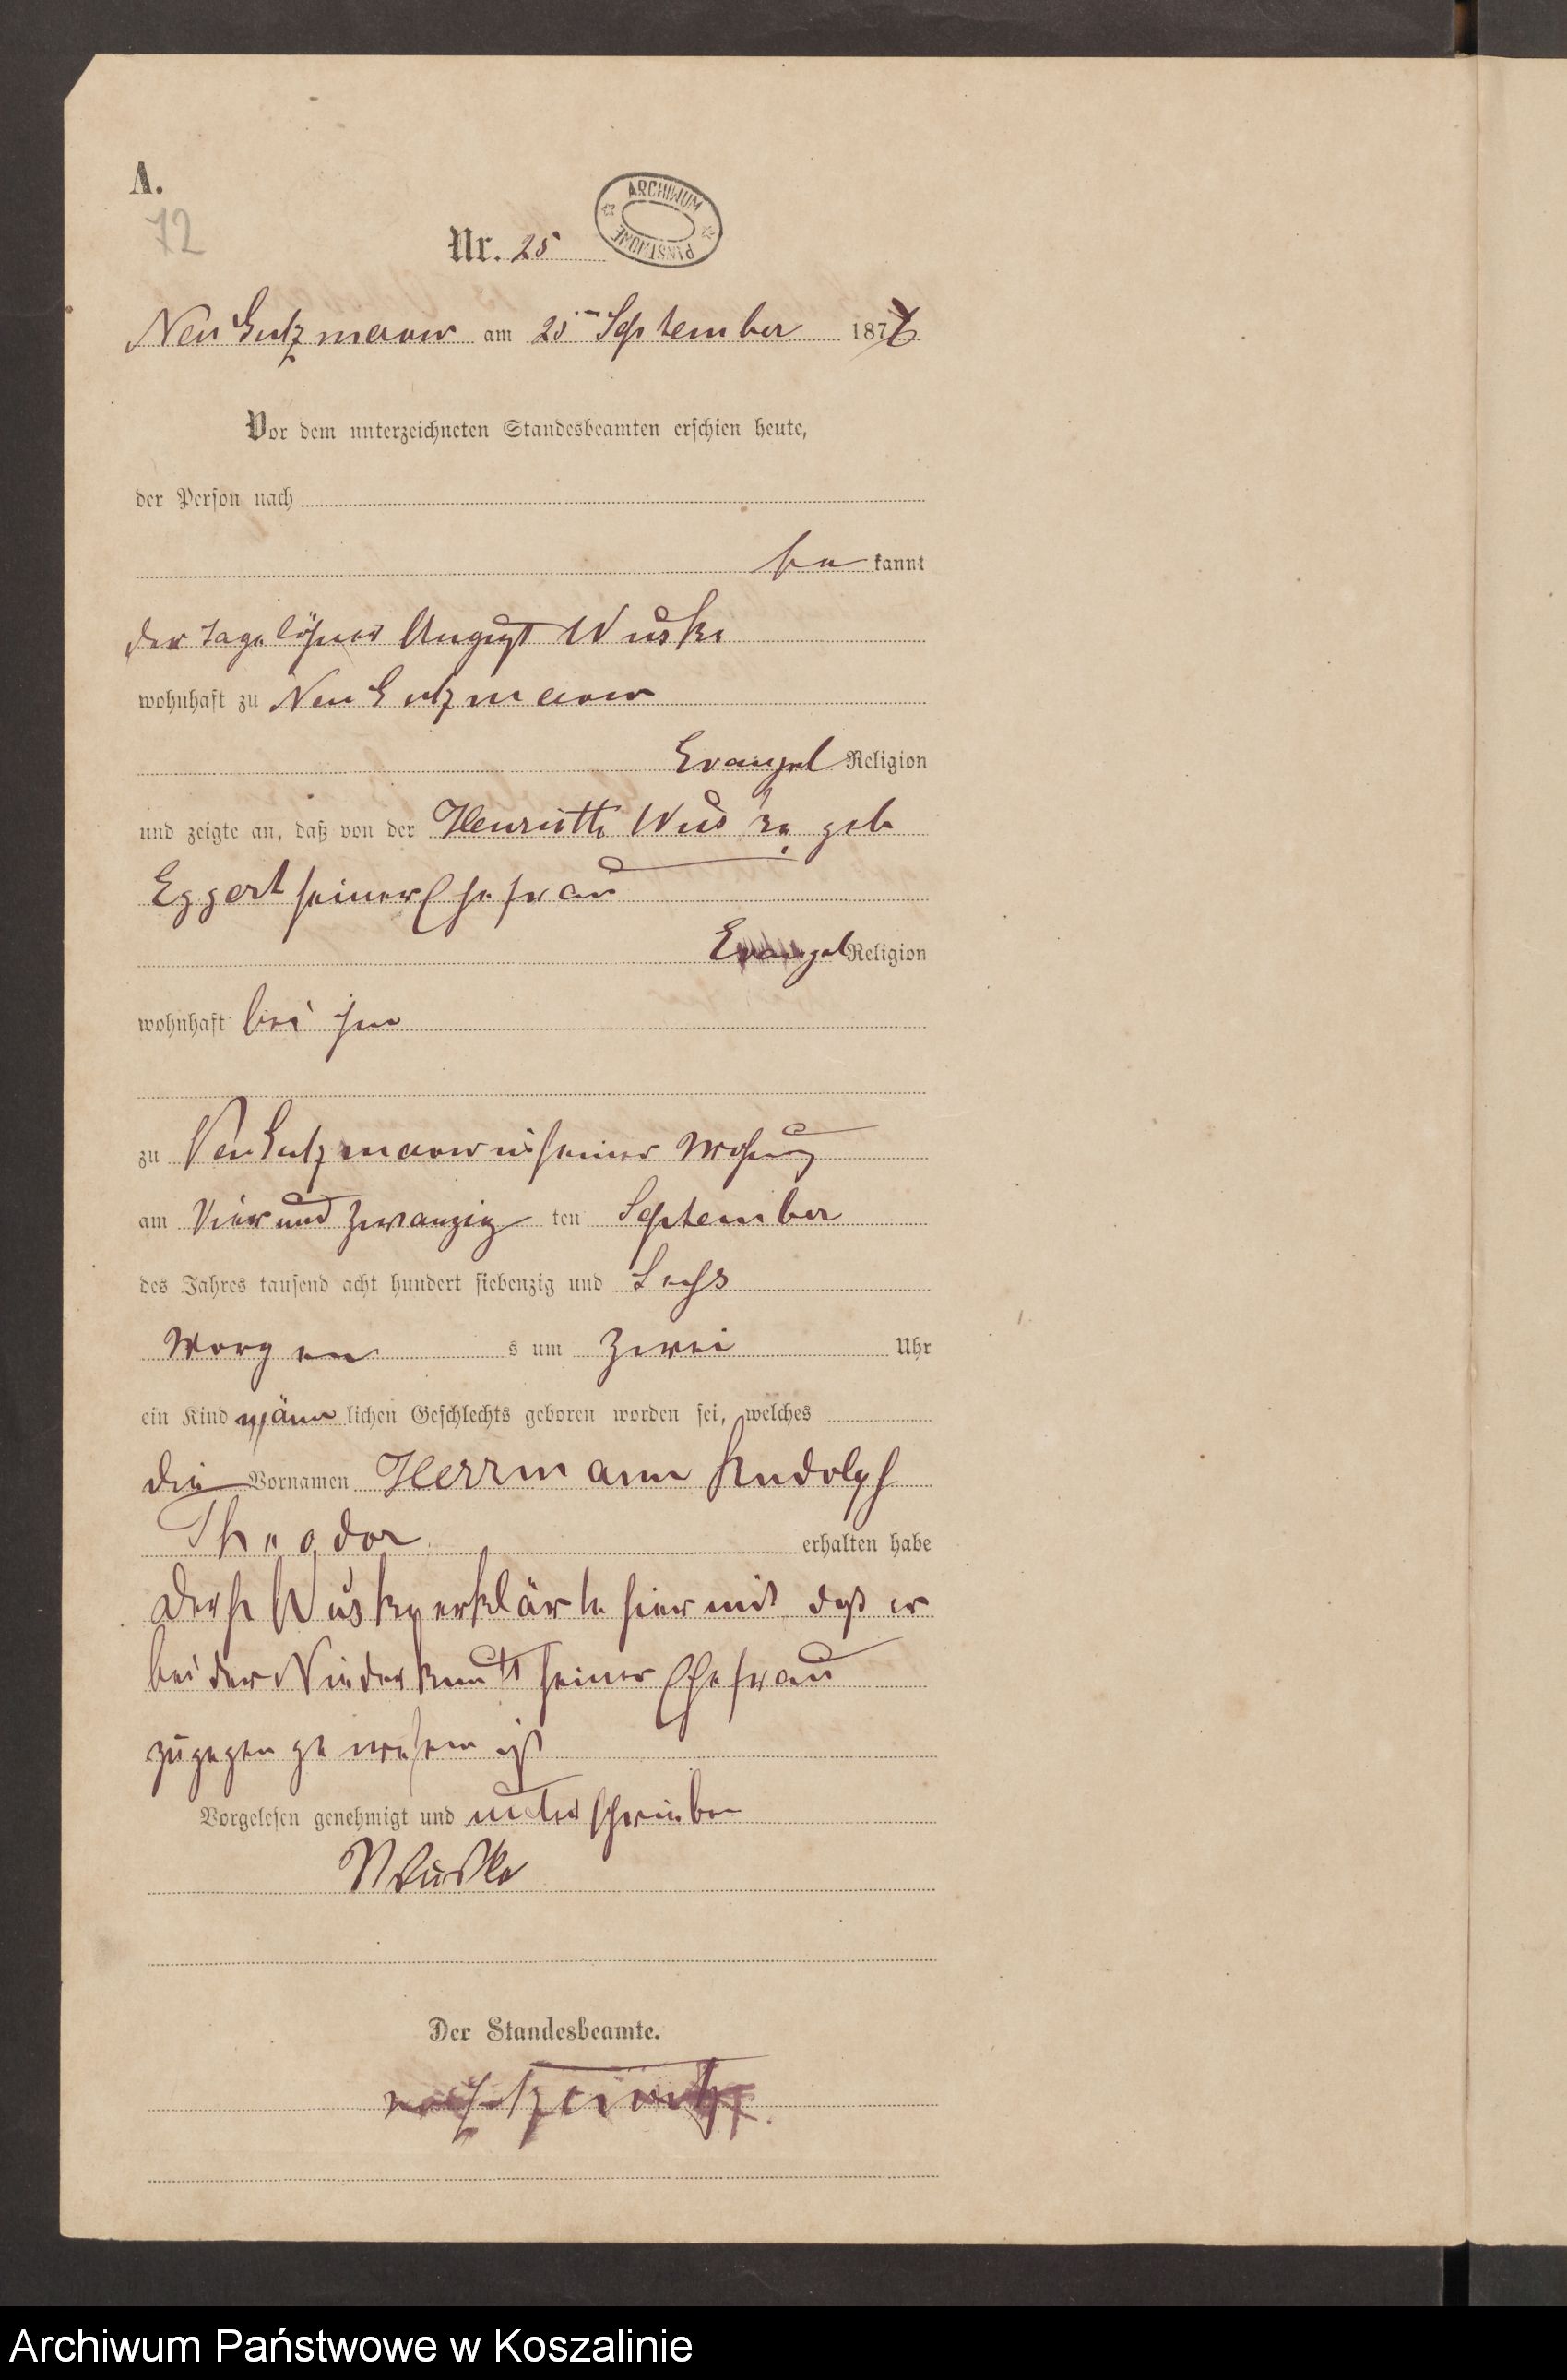 A.
72
Nr. 25
ARCHIWUM PAŃSTWOWE
Neu Gutzmerow am 25ten September 1876
Vor dem unterzeichneten Standesbeamten erschien heute,
der Person nach
be kannt
der Tagelöhner August Wuske
wohnhaft zu Neu Gutzmerow
Evangel Religion
und zeigte an, daß von der Henriette Wuske geb
Eggert seiner Ehefrau
Evangel Religion
wohnhaft bei ihm
zu Neu Gutzmerow in seiner Wohnung
am Vier und Zwanzig ten September
des Jahres tausend acht hundert siebenzig und Sechs
Morgen s um Zwei Uhr
ein Kind männ lichen Geschlechts geboren worden sei, welches
die Vornamen Herrmann Rudolph
Theodor erhalten habe
Wuske erklärte hiermit daß er
bei der Niederkunft seiner Ehefrau
zugegen gewesen ist
Vorgelesen genehmigt und unterschrieben
Wuske
Der Standesbeamte.
Archiwum Państwowe w Koszalinie